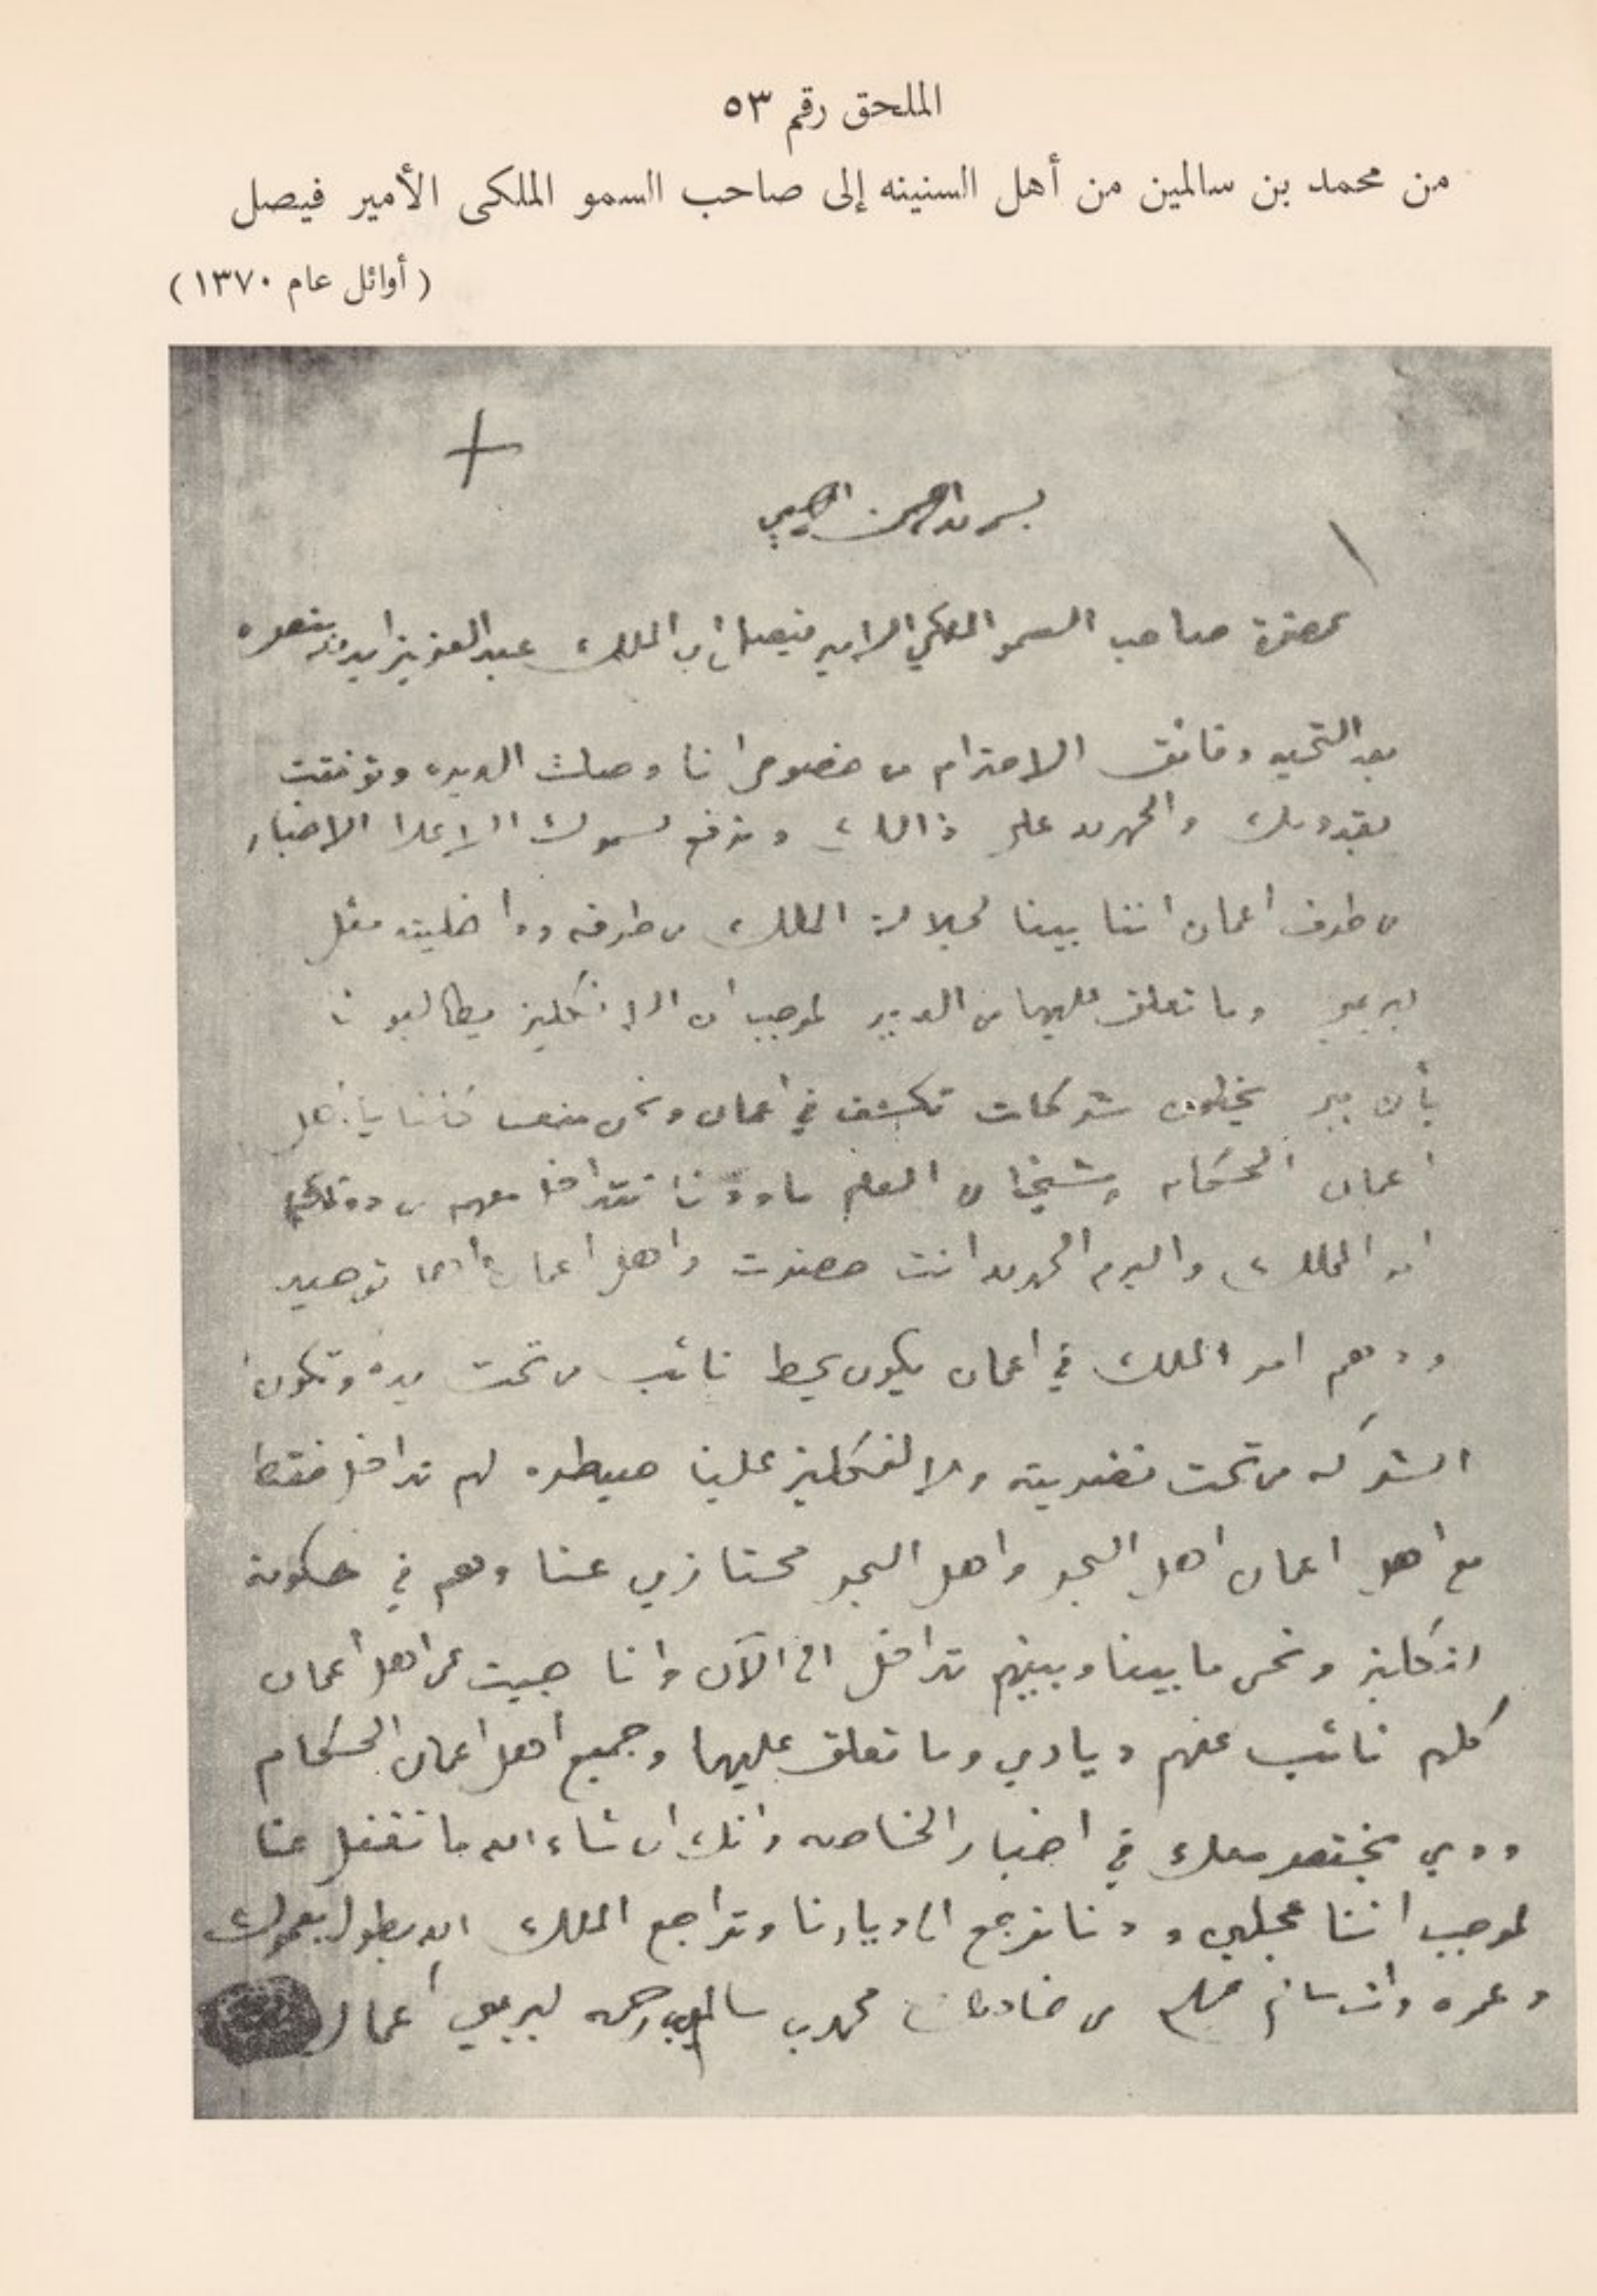 الملحق رقم ٥٣
من محمد بن سالمين من أهل السنينه إلى صاحب السمو الملكى الأمير فيصل
(أوائل عام ١٣٧٠)
بسم الله الرحمن الرحيم
بحضرة صاحب السمو الملكي الامير فيصل ابن الملك عبد العزيز ايده الله بنصره
بعد التحيه وفائق الاحترام من خصوص انا وصلت الديره وتوفقت
بقدومك والحمد لله على ذالك ونرفع لسموك الاعلا الاخبار
من طرف اعمان اننا بينا لجلالة الملك من طرفه وداخليته مثل
لبريمي وما تعلق عليها من الديير لموجب ان الانكليز يطالبونا
بأن يخطون شركات تكشف في اعمان ونحن
اعمان الحكام وشيخان ما ودنا نتداخل معهم من دون
امر الملك واليوم الحمد لله انت حضرت واهل اعمان
ودهم امر الملك في اعمان يكون يحط نائب من تحت يده وتكون
الشركه من تحت ولا لنكليز علينا صيطره لهم تداخل فقط
مع اهل اعمان اهل البحر واهل البحر محتازين عنا وهم في حكومة
انكليز ونحن ما بيننا وبينهم تداخل الى الآن وانا جيت عن اهل اعمان
كلهم نائب عنهم ديادي وما تعلق عليها وجميع اهل اعمان الحكام
وودي نختصر معك في اخبار الخاصه وانك ان شاء الله ما تغفل عنا
لموجب اننا عجلين وودنا نرجع الى ديارنا ونراجع الملك الله يطول بعمرك
وعمره وانت سالم من خادمك محمد بن سالمين بن رحمه لبريمي اعمان